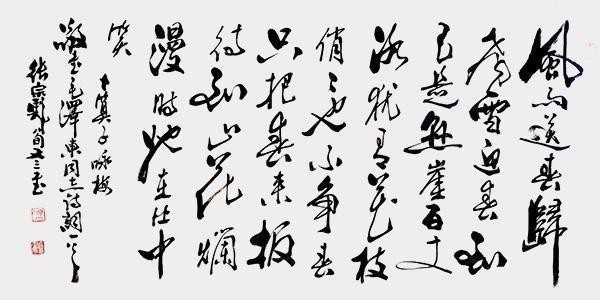 風雨送春歸
飛雪迎春到
已是懸崖百丈
冰猶有花枝
俏〻也不争春
只把春来报
待到山花爛
漫時她在丛中
笑
卜算子咏梅
毛澤東同志詩詞一首